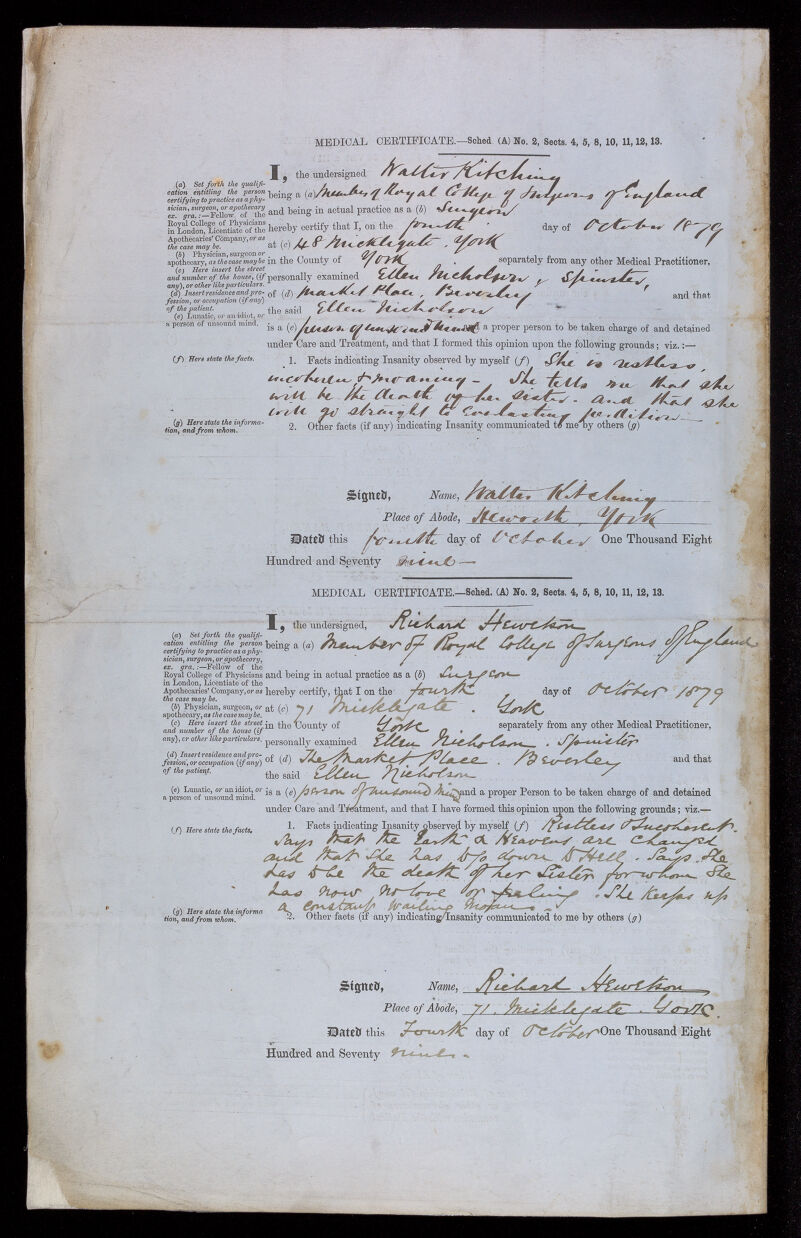 MEDICAL CERTIFICATE.—Sched. (A) No. 2, Sects. 4, 5, 8, 10, 11, 12, 13.
I, the undersigned Walter Kitching
(a) Set forth the qualifi-
cation entitling the person
certifying to practice as a phy-
sician, surgeon, or apothecary
ex. gra.:—Fellow of the
Royal College of Physicians
in London, Licentiate of the
Apothecaries' Company, or as
the case may be.
(b) Physician, surgeon or
apothecary, as the case may be
(c) Here insert the street
and number of the house, (if
any), or other like particulars.
(d) Insert residence and pro-
fession, or occupation (if any)
of the patient.
(e) Lunatic, or an idiot, or
a person of unsound mind.
being a (a) Member of Royal College of Surgeons of England
and being in actual practice as a (b) Surgeon
hereby certify that I, on the fourth day of October 1879
at (c) 48 Micklegate. York
in the County of York separately from any other Medical Practitioner,
personally examined Ellen Nicholson, Spinster,
of (d) Market Place, Beverley and that
the said Ellen Nicholson
is a (e) person of unsound mind and a proper person to be taken charge of and detained
under Care and Treatment, and that I formed this opinion upon the following grounds; viz.:—
(f) Here state the facts.
1. Facts indicating Insanity observed by myself (f) She is restless,
incoherent & moaning - She tells me that she
will be the death of her sister. and that she
will go straight to everlasting perdition
(g) Here state the informa-
tion, and from whom.
2. Other facts (if any) indicating Insanity communicated to me by others (g)
Signed, Name, Walter Kitching
Place of Abode, Heworth, York
Dated this fourth day of October One Thousand Eight
Hundred and Seventy nine—
MEDICAL CERTIFICATE.—Sched. (A) No. 2, Sects. 4, 5, 8, 10, 11, 12, 13.
I, the undersigned, Richard Hewetson
(a) Set forth the qualifi-
cation entitling the person
certifying to practice as a phy-
sician, surgeon, or apothecary,
ex. gra.:—Fellow of the
Royal College of Physicians
in London, Licentiate of the
Apothecaries' Company, or as
the case may be.
(b) Physician, surgeon, or
apothecary, as the case may be.
(c) Here insert the street
and number of the house (if
any), or other like particulars.
(d) Insert residence and pro-
fession, or occupation (if any)
of the patient.
(e) Lunatic, or an idiot, or
a person of unsound mind.
being a (a) Member of Royal College of Surgeons of England
and being in actual practice as a (b) Surgeon
hereby certify, that I on the fourth day of October 1879
at (c) 71 Micklegate. York
in the County of York separately from any other Medical Practitioner,
personally examined Ellen Nicholson. Spinster
of (d) The Market Place. Beverley and that
the said Ellen Nicholson
is a (e) person of unsound mind and a proper Person to be taken charge of and detained
under Care and Treatment, and that I have formed this opinion upon the following grounds; viz.—
(f) Here state the facts.
1. Facts indicating Insanity observed by myself (f) Restless & Incoherent.
Says that the Earth & Heavens are changed
and that she has to go down to Hell. Says She
has to be the death of her Sister for whom She
has now no love or feeling. She keeps up
a constant wailing moan
(g) Here state the informa
tion, and from whom.
2. Other facts (if any) indicating Insanity communicated to me by others (g)
Signed, Name, Richard Hewetson
Place of Abode, 71. Micklegate. York.
Dated this Fourth day of October One Thousand Eight
Hundred and Seventy nine.